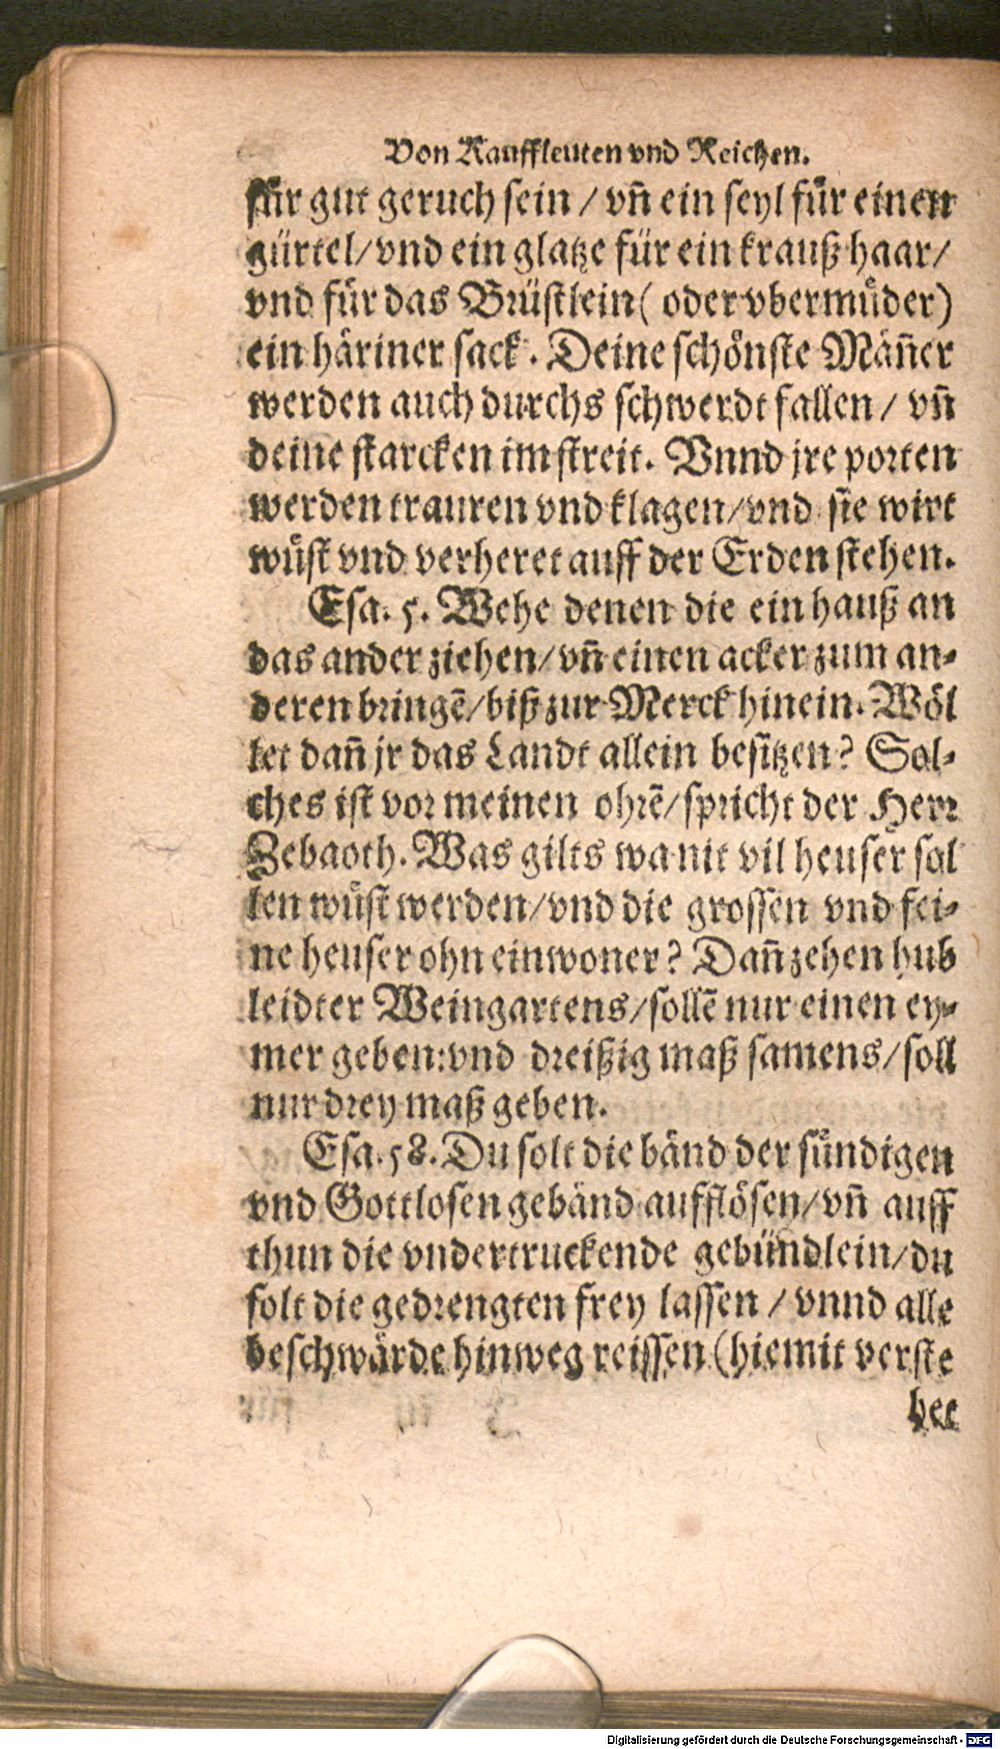 Von Kauffleuten vnd Reichen.
für gut geruch sein / vn̄ ein seyl für einen
gürtel/ vnd ein glatze für ein krauß haar/
vnd für das Brüstlein( oder vbermůder)
ein häriner sack. Deine schönste Mäñer
werden auch durchs schwerdt fallen / vn̄
deine starcken im streit. Vnnd jre porten
werden trauren vnd klagen/vnd sie wirt
wůst vnd verheret auff der Erden stehen.
Esa. 5. Wehe denen die ein hauß an
das ander ziehen/vn̄ einen acker zum an-
deren bringē/biß zur Merck hinein. Wöl
let dañ jr das Landt allein besitzen? Sol-
ches ist vor meinen ohrē/spricht der Herr
Zebaoth. Was gilts wa nit vil heuser sol
len wůst werden/vnd die grossen vnd fei-
ne heuser ohn einwoner? Dañ zehen hub
leidter Weingartens/sollē nur einen ey-
mer geben:vnd dreißig maß samens/soll
nur drey maß geben.
Esa. 58. Du solt die bänd der sündigen
vnd Gottlosen gebänd aufflösen/vn̄ auff
thun die vndertruckende gebündlein/du
solt die gedrengten frey lassen / vnnd alle
beschwärde hinweg reissen (hiemit verste
het
Digitalisierung gefördert durch die Deutsche Forschungsgemeinschaft - DFG